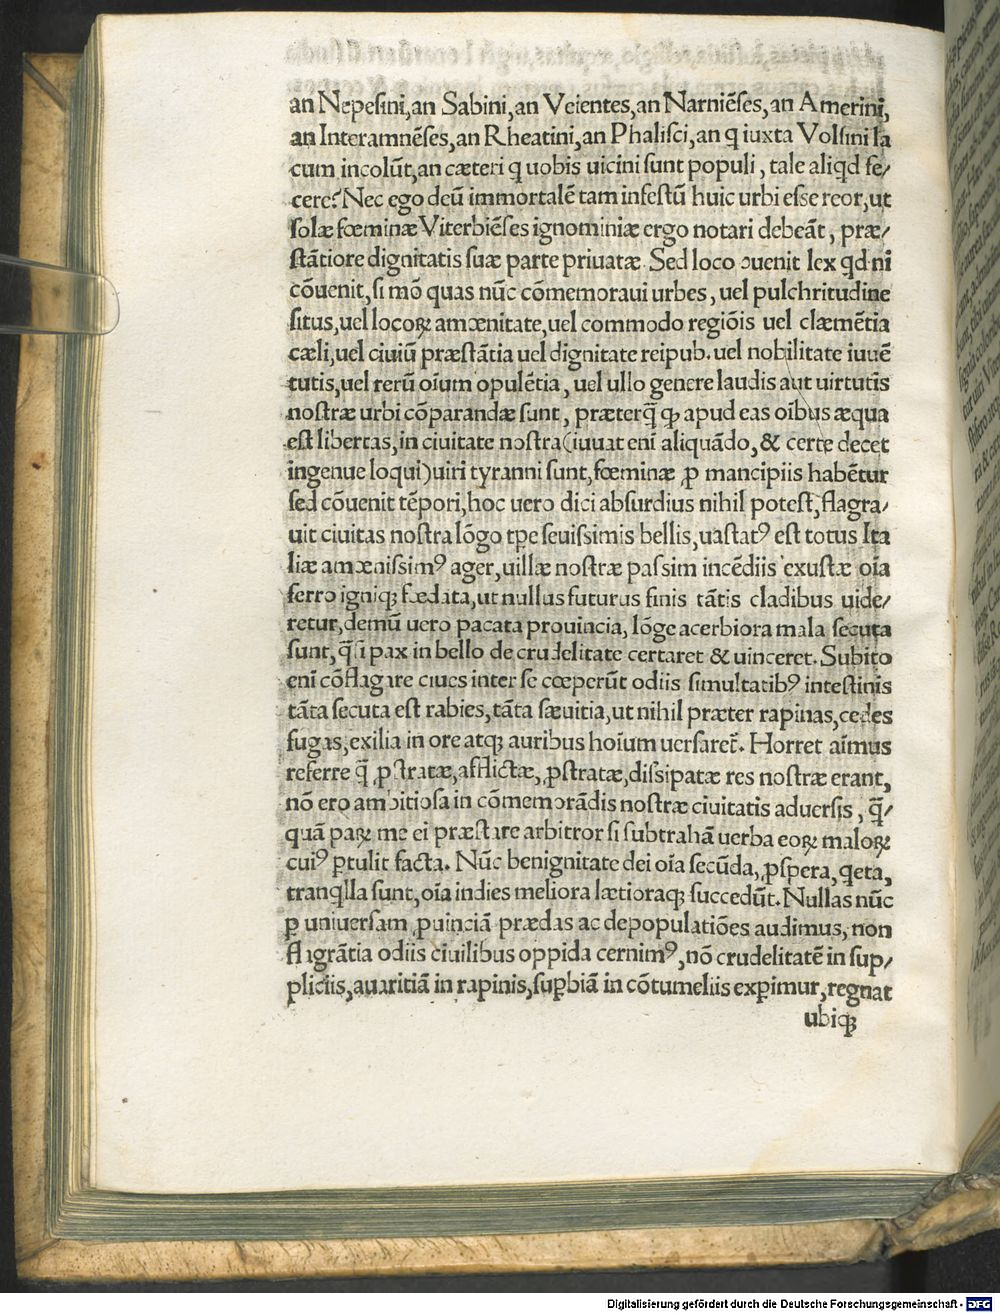 an Nepesini,an Sabini,an Veientes,an Narniēses, an Amerini,
an Interamnēses,an Rheatini,an Phalisci,an q iuxta Volsini la
cum incolūt,an cæteri q uobis uicini sunt populi, tale aliqd fe/
cere? Nec ego deū immortalē tam infestū huic urbi esse reor,ut
solæ fœminæ Viterbiēses ignominiæ ergo notari debeāt, præ/
stātiore dignitatis suæ parte priuatæ. Sed loco ɔuenit lex qd ni
cōuenit,si mō quas nūc cōmemoraui urbes, uel pulchritudine
situs,uel locoꝝ amœnitate,uel commodo regiōis uel clæmētia
cæli,uel ciuiū præstātia uel dignitate reipub. uel nobilitate iuuē
tutis,uel rerū oīum opulētia, uel ullo genere laudis aut uirtutis
nostræ urbi cōparandæ sunt, præterq̄ ꝙ apud eas oībus æqua
est libertas,in ciuitate nostra(iuuat enī aliquādo,& certe decet
ingenue loqui)uiri tyranni sunt,fœminæ ꝓ mancipiis habētur
sed cōuenit tēpori,hoc uero dici absurdius nihil potest,flagra/
uit ciuitas nostra lōgo tꝑe seuissimis bellis,uastatꝰ est totus Ita
liæ amœnissimꝰ ager,uillæ nostræ passim incēdiis exustæ oīa
ferro igniqꝫ fœdata,ut nullus futurus finis tātis cladibus uide/
retur,demū uero pacata prouincia, lōge acerbiora mala secuta
sunt,q̄si pax in bello de crudelitate certaret & uinceret. Subito
enī cōflagare ciues inter se cœperūt odiis simultatibꝰ intestinis
tāta secuta est rabies,tāta sæuitia,ut nihil præter rapinas,cedes
fugas,exilia in ore atqꝫ auribus hoīum uersaret̄. Horret aīmus
referre q̄ ꝓstratæ,afflictæ,ꝓstratæ,dissipatæ res nostræ erant,
nō ero ambitiosa in cōmemorādis nostræ ciuitatis aduersis, q̄/
quā paꝝ me ei præstare arbitror si subtrahā uerba eoꝝ maloꝝ
cuiꝰ ꝑtulit facta. Nūc benignitate dei oīa secūda, ꝓspera, qeta,
tranqlla sunt,oīa indies meliora lætioraqꝫ succedūt. Nullas nūc
ꝑ uniuersam ꝓuinciā prædas ac depopulatiōes audimus, non
flagrātia odiis ciuilibus oppida cernimꝰ,nō crudelitatē in sup/
pliciis,auaritiā in rapinis,supbiā in cōtumeliis exꝑimur,regnat
ubiqꝫ
Digitalisierung gefördert durch die Deutsche Forschungsgemeinschaft - DFG